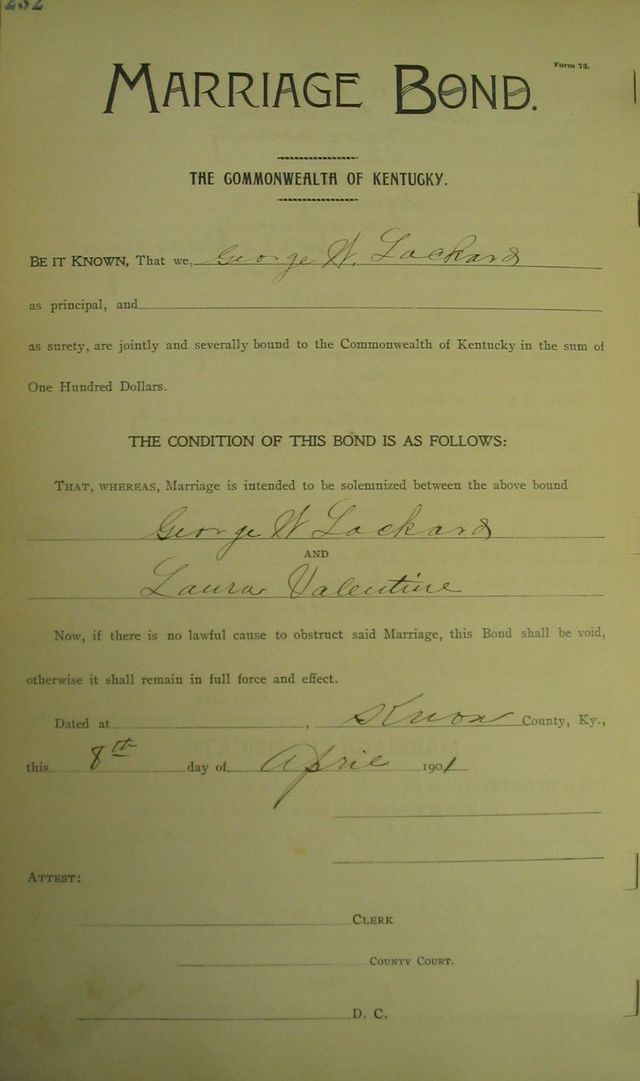 232
Form 73.
MARRIAGE BOND.
THE COMMONWEALTH OF KENTUCKY.
BE IT KNOWN, That we, George W. Lockard
as principal, and
as surety, are jointly and severally bound to the Commonwealth of Kentucky in the sum of
One Hundred Dollars.
THE CONDITION OF THIS BOND IS AS FOLLOWS:
THAT, WHEREAS, Marriage is intended to be solemnized between the above bound
George W Lockard
AND
Laura Valentine
Now, if there is no lawful cause to obstruct said Marriage, this Bond shall be void,
otherwise it shall remain in full force and effect.
Dated at , Knox County, Ky.,
this 8th day of April 1901
ATTEST:
CLERK
COUNTY COURT.
D. C.